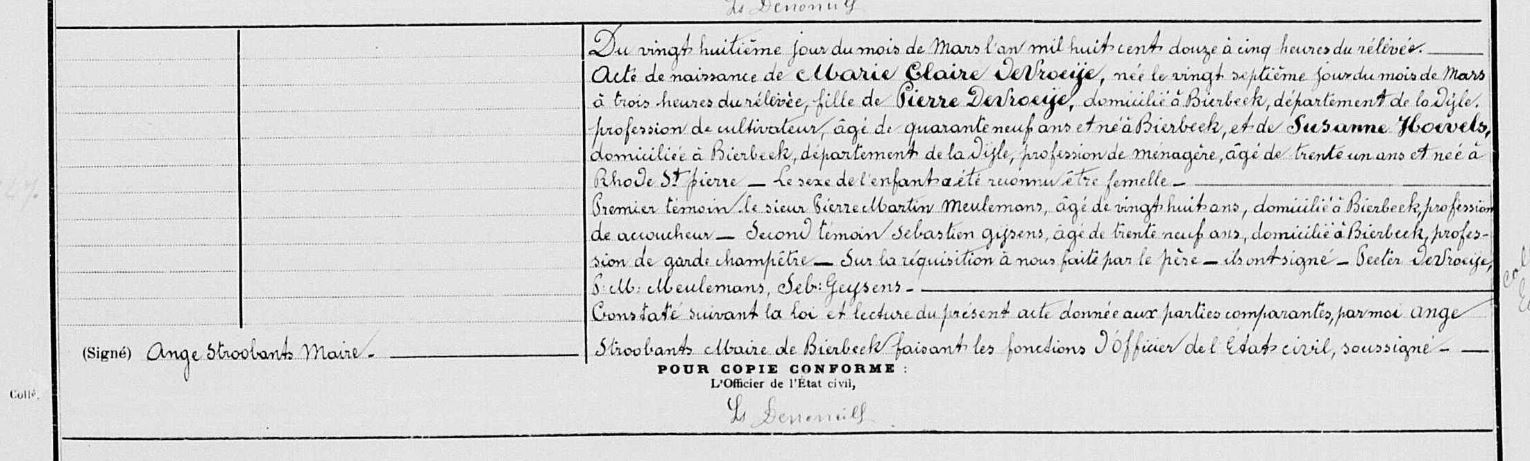 Du vingt huitième jour du mois de Mars l'an mil huit cent douze à cinq heures du rélévée.
Acte de naissance de Marie Claire DeVroeije, née le vingt septième jour du mois de Mars
à trois heures du rélévée, fille de Pierre DeVroeije, domicilié à Bierbeek, département de la Dijle,
profession de cultivateur, âgé de quarante neuf ans et né à Bierbeek, et de Susanne Hoevels,
domiciliée à Bierbeek, département de la Dijle, profession de ménagère, âgé de trente un ans et née à
Rhode St pierre — Le sexe de l'enfant a été reconnu être femelle —
Premier témoin le sieur Pierre Martin Meulemans, âgé de vingt huit ans, domicilié à Bierbeek, profession
de accoucheur — Second témoin Sebastien Gijsens, âgé de trente neuf ans, domicilié à Bierbeek, profes-
sion de garde champêtre — Sur la réquisition à nous faite par le père — ils ont signé — Peeter DeVroeije,
P: M: Meulemans, Seb: Geysens —
Constaté suivant la loi et lecture du présent acte donnée aux parties comparantes, par moi Ange
(Signé) Ange Stroobants Maire —
Stroobants Maire de Bierbeek faisant les fonctions d'Officier de l'État civil, soussigné —
POUR COPIE CONFORME :
L'Officier de l'État civil,
Collé.